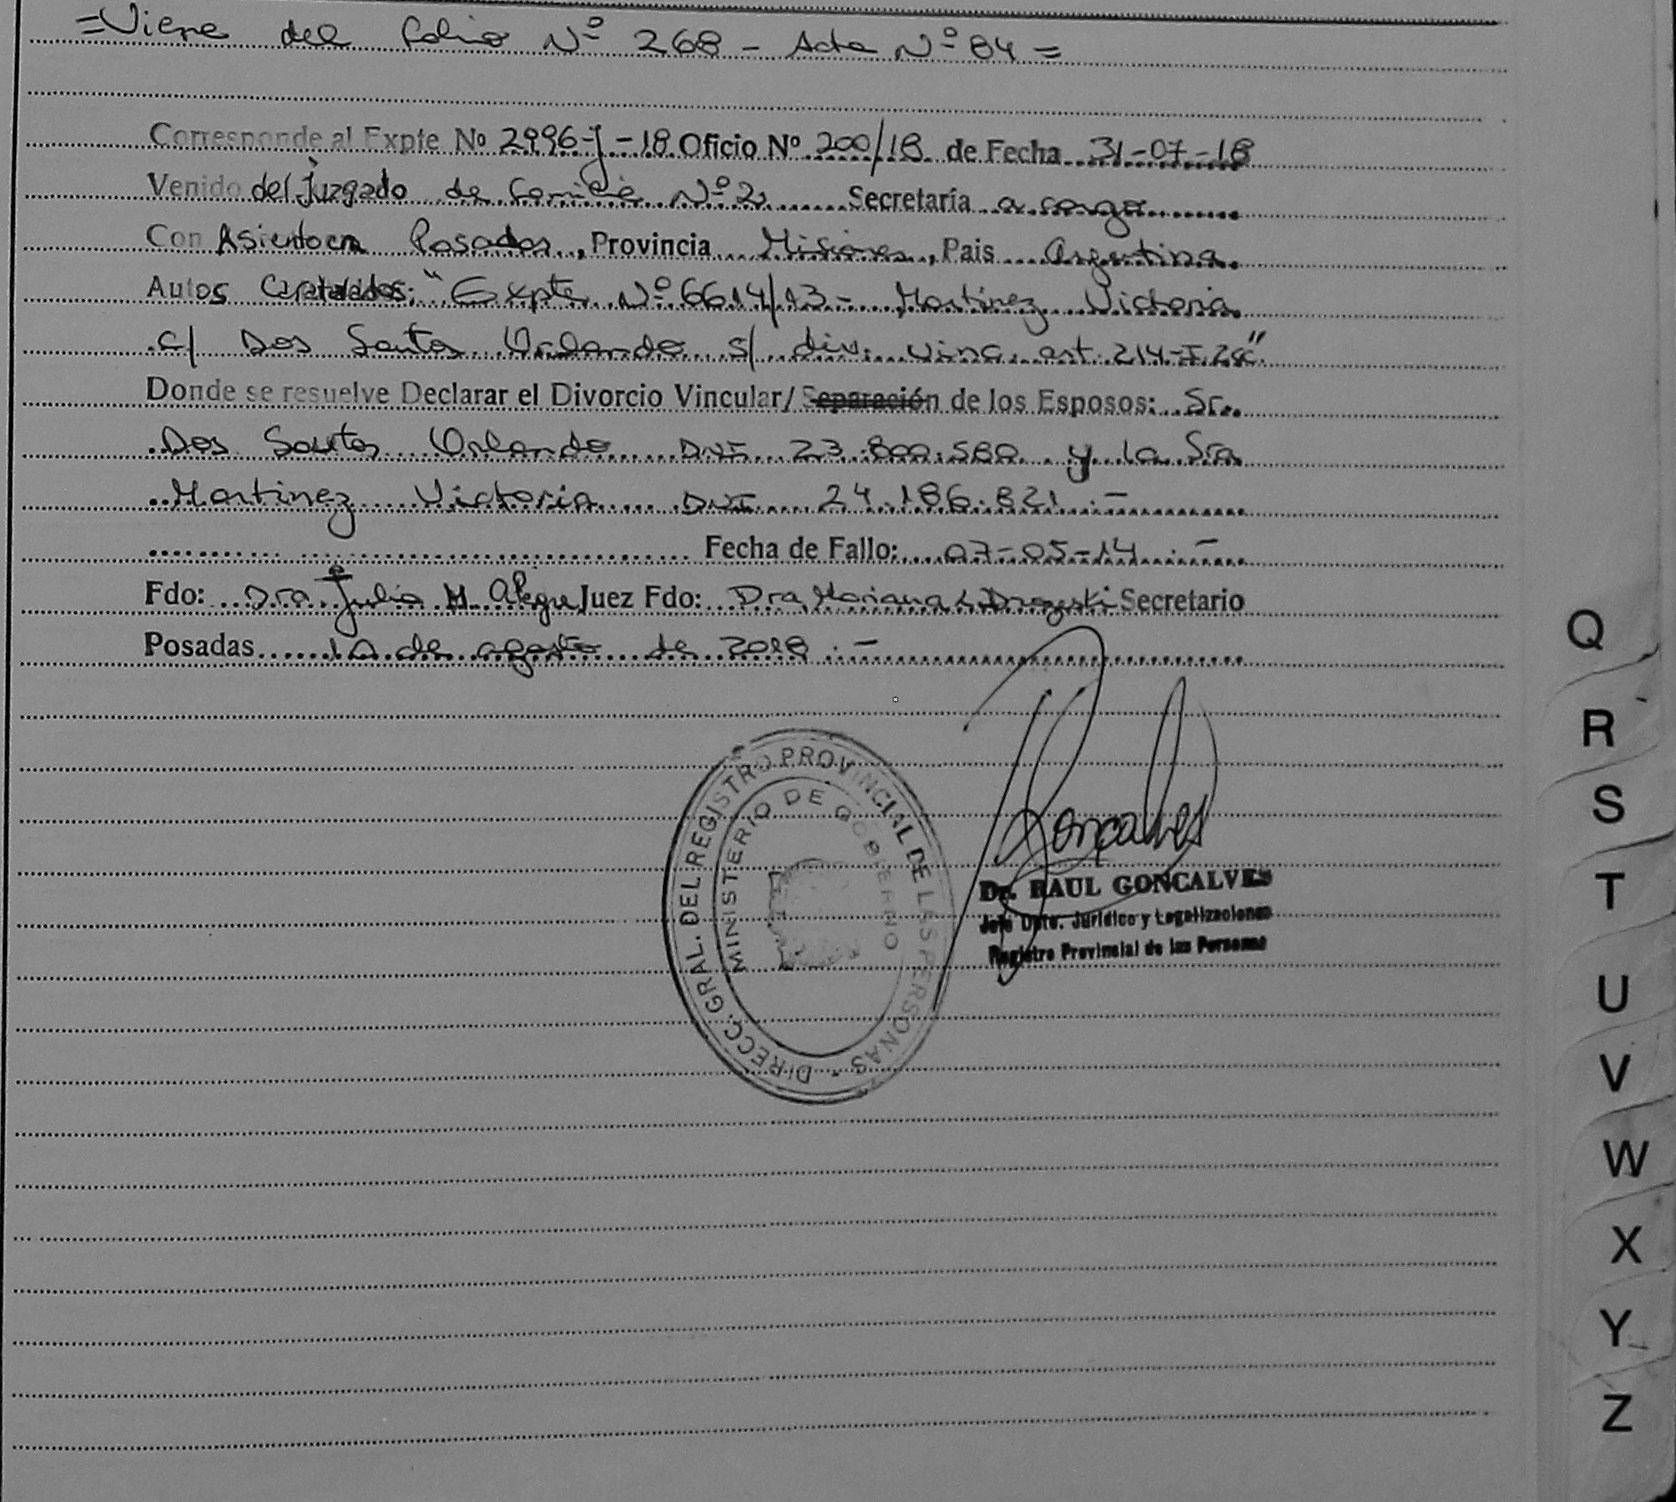 =Viene del folio Nº 268 - Acta Nº 84 =
Corresponde al Expte Nº 2996-J-18 Oficio Nº 200/18 de Fecha 31-07-18
Venido del Juzgado de Familia Nº 2 Secretaría a cargo
Con Asiento en Posadas, Provincia Misiones, Pais Argentina.
Autos Caratulados: "Expte Nº 6614/13 - Martinez Victoria
c/ Dos Santos Orlando s/ div. vinc. art. 214-I.2CC"
Donde se resuelve Declarar el Divorcio Vincular/Separación de los Esposos: Sr.
Dos Santos Orlando DNI 23.800.580 y la Sra
Martinez Victoria DNI 24.186.821.-
Fecha de Fallo: 07-05-14.-
Fdo: Dra. Julia M. Alegre Juez Fdo: Dra. Mariana Secretario
Posadas 10 de agosto de 2018.-
DIRECC. GRAL. DEL REGISTRO PROVINCIAL DE LAS PERSONAS
MINISTERIO DE GOBIERNO
Goncalves
Dr. RAUL GONCALVES
Jefe Dpto. Jurídico y Legalizaciones
Registro Provincial de las Personas
Q
R
S
T
U
V
W
X
Y
Z